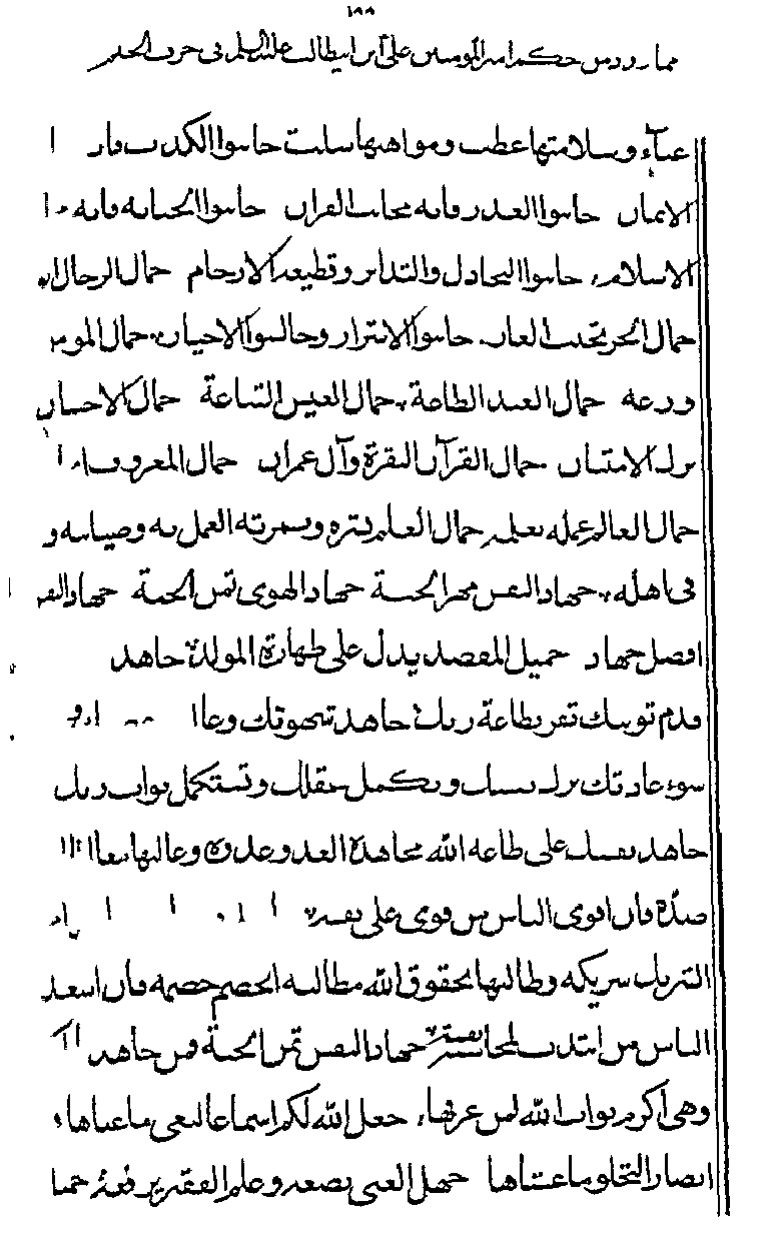 ١٨٨
مما ورد من حكم امير المؤمنين علي بن ابيطالب عليه السلم في حرف الجيم
عناء وسلامتها عطب ومواهبها سلب جانبوا الكذب فانه
الايمان جانبوا الغدر فانه مجانب القران جانبوا الخيانة فانه
الاسلام جانبوا التخاذل والتدابر وقطيعة الارحام جمال الرجال
جمال الحر تجنب العار جانبوا الاشرار وجالسوا الاخيار جمال المومن
ورعه جمال العبد الطاعة جمال العيش القناعة جمال الاحسان
ترك الامتنان جمال القرآن البقرة وآل عمران جمال المعروف
جمال العالم عمله بعلمه جمال العلم نشره وثمرته العمل به وصيانته و
في اهله جهاد النفس مهر الجنة جهاد الهوى ثمن الجنة جهاد
افضل جهاد جميل المقصد يدل على طهارة المولد جاهد
قدم توبتك تفز بطاعة ربك جاهد شهوتك و
سوء عادتك تزك نفسك ويكمل عقلك وتستكمل ثواب ربك
جاهد نفسك على طاعة الله مجاهدة العدو عدوه وغالبها
ضده فان اقوى الناس من قوى على نفسه
الشريك شريكه وطالبها بحقوق الله مطالبة الخصم خصمه فان اسعد
الناس من انتدب لمحاسبة نفسه جهاد النفس ثمن الجنة فمن جاهد
وهي اكرم ثواب الله لمن عرفها جعل الله لكم اسماعا لتعي ما عناها
ابصارا لتجلو ما عشاها جهل الغنى يضعه وعلم الفقير يرفعه